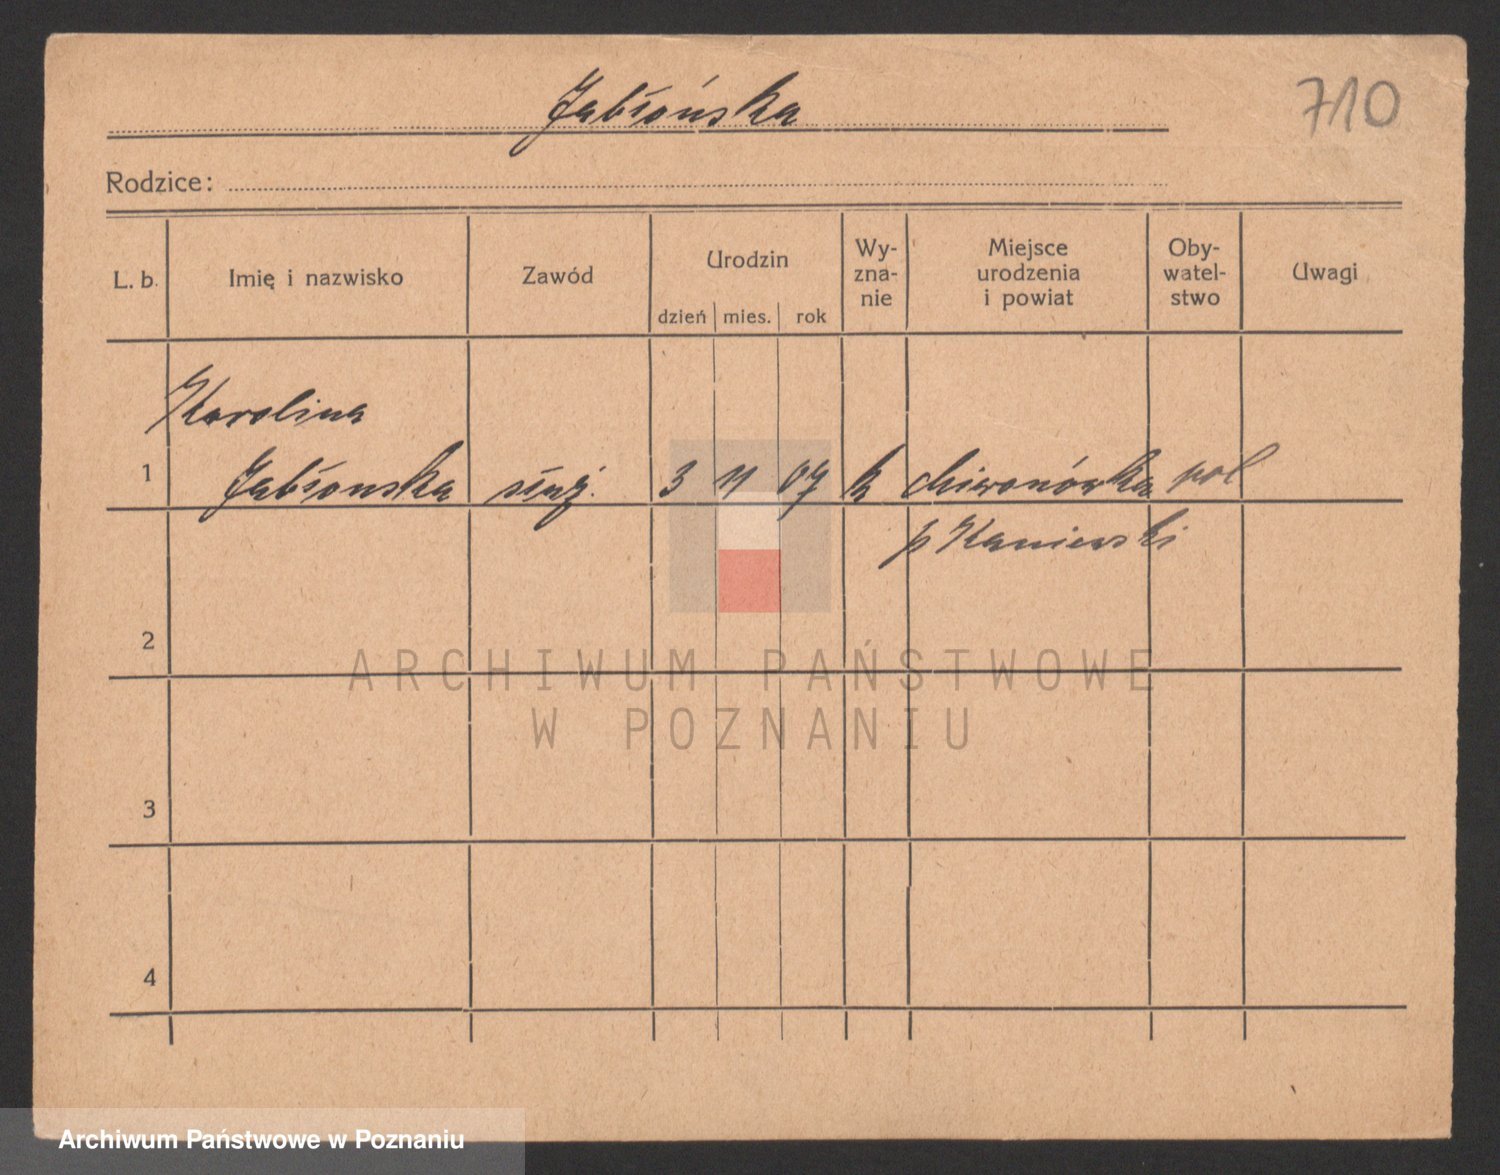 Jabłońska
710
Rodzice:
L. b. Imię i nazwisko Zawód Urodzin dzień mies. rok Wy-zna-nie Miejsce urodzenia i powiat Oby-watel-stwo Uwagi
Karolina
1 Jabłonska służ. 3 11 07 k pol
p Kaniewski
2
3
4
ARCHIWUM PAŃSTWOWE
W POZNANIU
Archiwum Państwowe w Poznaniu